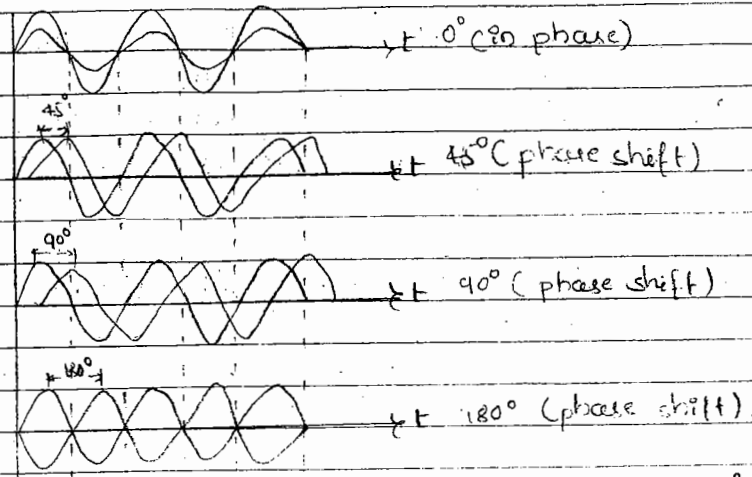 t 0° (in phase)
45°
t 45° (phase shift)
90°
t 90° (phase shift)
180°
t 180° (phase shift)